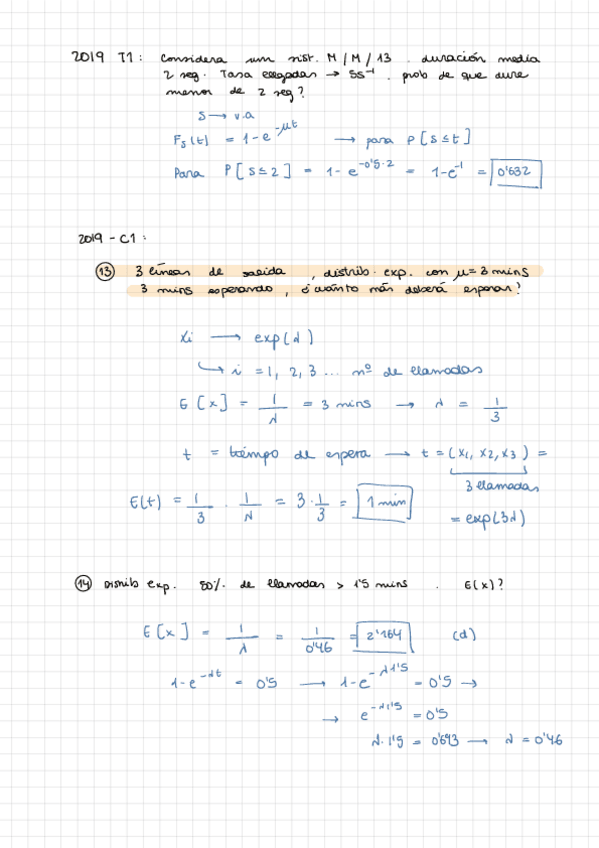 2019 T1: Considera un sist. M/M/13. duración media
2 seg. Tasa llegadas → 5s⁻¹. prob de que dure
menor de 2 seg?
S → v.a
Fs(t) = 1-e^-μt → para P[S≤t]
Para P[S≤2] = 1-e^-0'5·2 = 1-e^-1 = 0'632
2019 - C1:
13 3 líneas de salida, distrib. exp. con μ=3 mins
3 mins esperando, ¿cuánto más deberá esperar?
Xi → exp(λ)
↳ i = 1, 2, 3 ... nº de llamadas
E[x] = 1/λ = 3 mins → λ = 1/3
t = tiempo de espera → t = (x1, x2, x3) =
3 llamadas
E(t) = 1/3 · 1/λ = 3·1/3 = 1 min
= exp(3λ)
14 Distrib exp. 50% de llamadas > 1'5 mins. E(x)?
E[x] = 1/λ = 1/0'46 = 2'164 (d)
1-e^-λt = 0'5 → 1-e^-λ1'5 = 0'5 →
→ e^-λ1'5 = 0'5
λ·1'5 = 0'693 → λ = 0'46